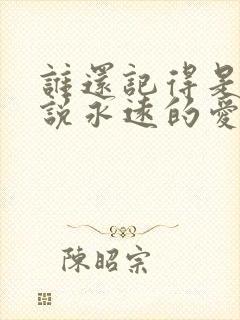 誰還記得是
說永遠的愛
陳昭宗